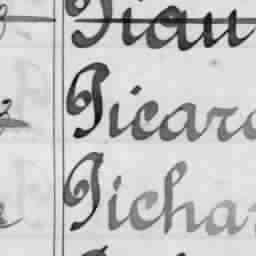 Piau
Picar
Picha